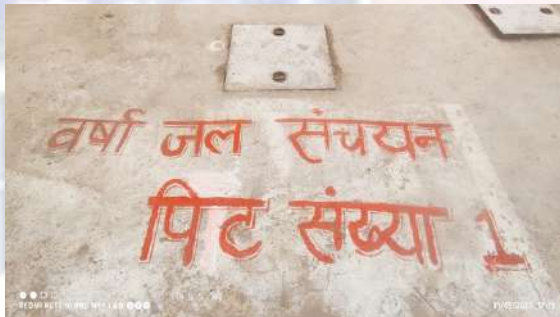 वर्षा जल संचयन
पिट संख्या 1